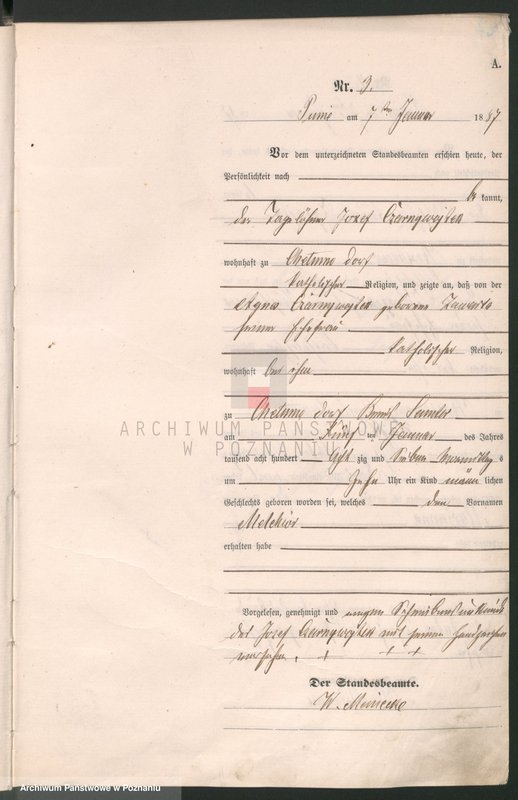 A.
Nr. 3.
am 7ten Januar 1887
Vor dem unterzeichneten Standesbeamten erschien heute, der
Persönlichkeit nach
be kannt,
der Tagelöhner Jozef Czarnywojtek
wohnhaft zu Chelmno dorf
katholischer Religion, und zeigte an, daß von der
Agnes Czarnywojtek geborene
seiner Ehefrau
katholischer Religion,
wohnhaft bei ihm
zu Chelmno dorf Kreis Samter
am fünf ten Januar des Jahres
tausend acht hundert acht zig und sieben Vormittags
um zehn Uhr ein Kind männ lichen
Geschlechts geboren worden sei, welches den Vornamen
Melchior
erhalten habe
Vorgelesen, genehmigt und wegen Schreibensunkunde
des Jozef Czarnywojtek mit seinen Handzeichen
versehen. + + +
Der Standesbeamte.
W. Meinecke
ARCHIWUM PAŃSTWOWE
W POZNANIU
Archiwum Państwowe w Poznaniu